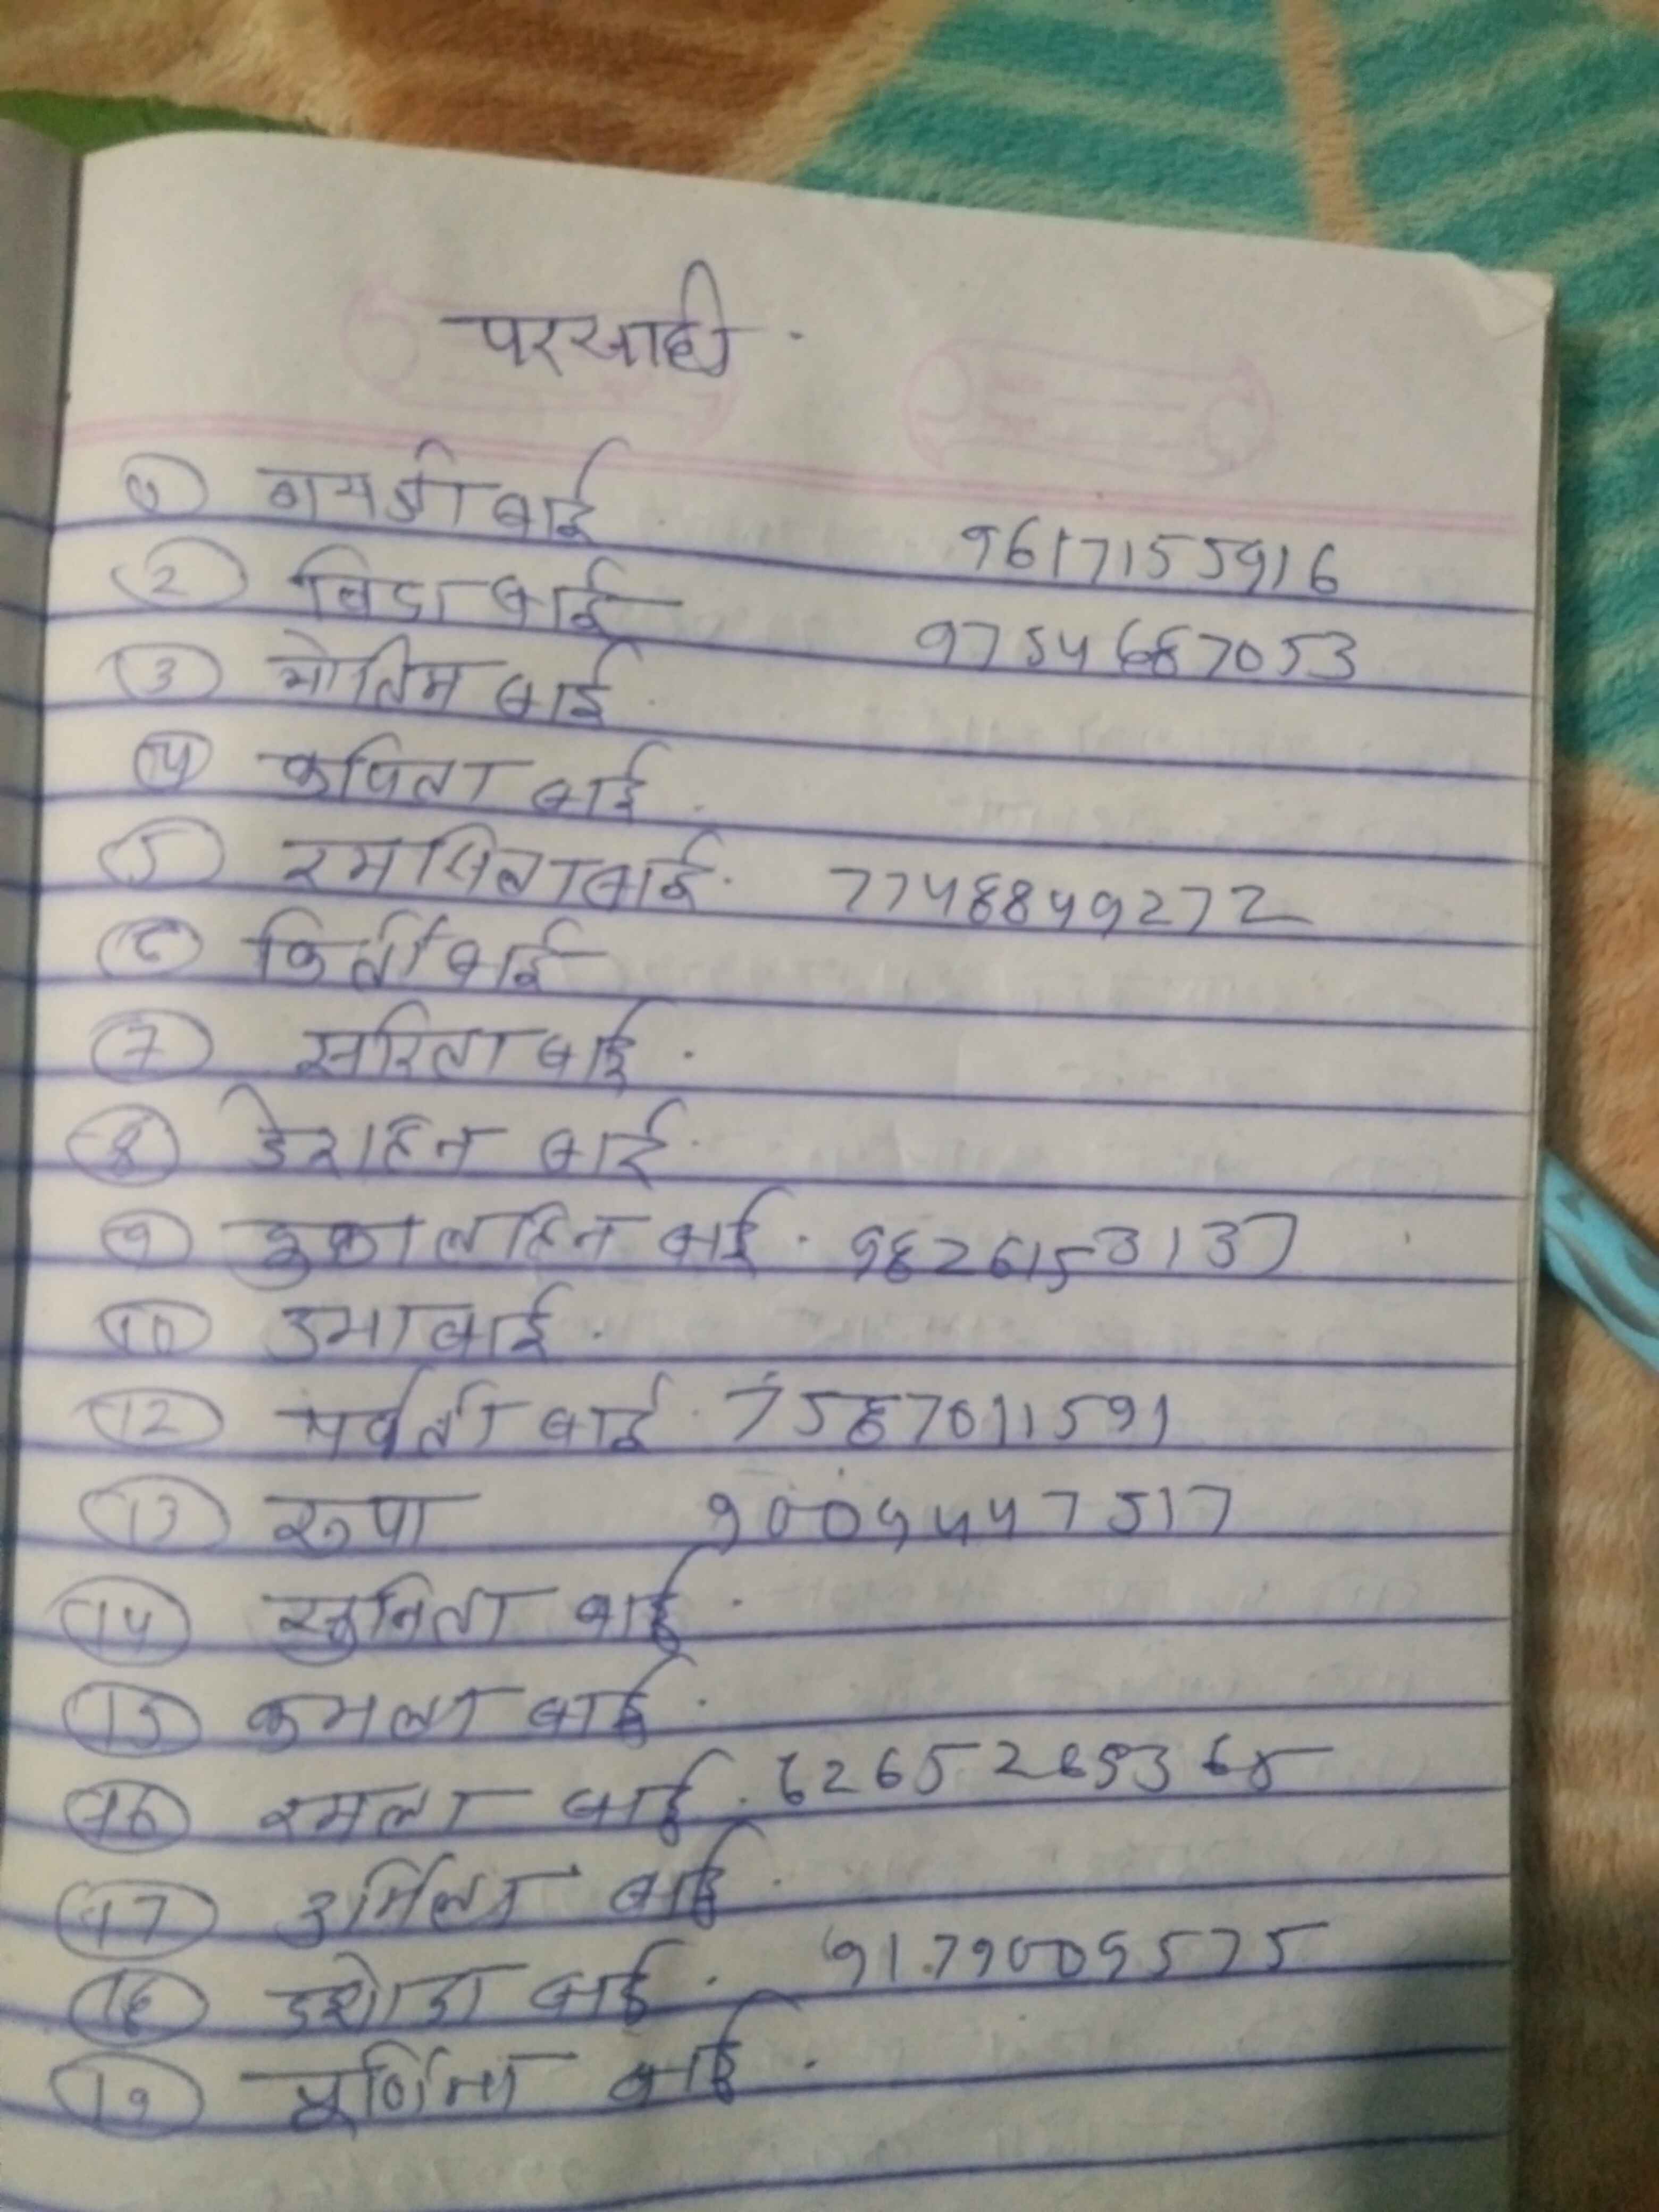 परसाही
① गायत्री बाई 9617155916
② बिदा बाई 9754687053
③ मोतिम बाई
④ कविता बाई
⑤ रमसिला बाई 7748849272
⑥ किर्ती बाई
⑦ सरिता बाई
⑧ डेराहिन बाई
⑨ दुकालहिन बाई 9826153137
⑩ उमा बाई
12 पर्वती बाई 7587011591
13 रुपा 9009447517
14 सुनिता बाई
15 कमला बाई
16 रमला बाई 6265265365
17 उर्मिला बाई
18 डशोदा बाई 9179009575
19 पूर्णिमा बाई